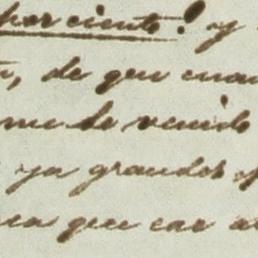 por ciento! y
, de que cuan
me he venido
ya grandes
que cae a